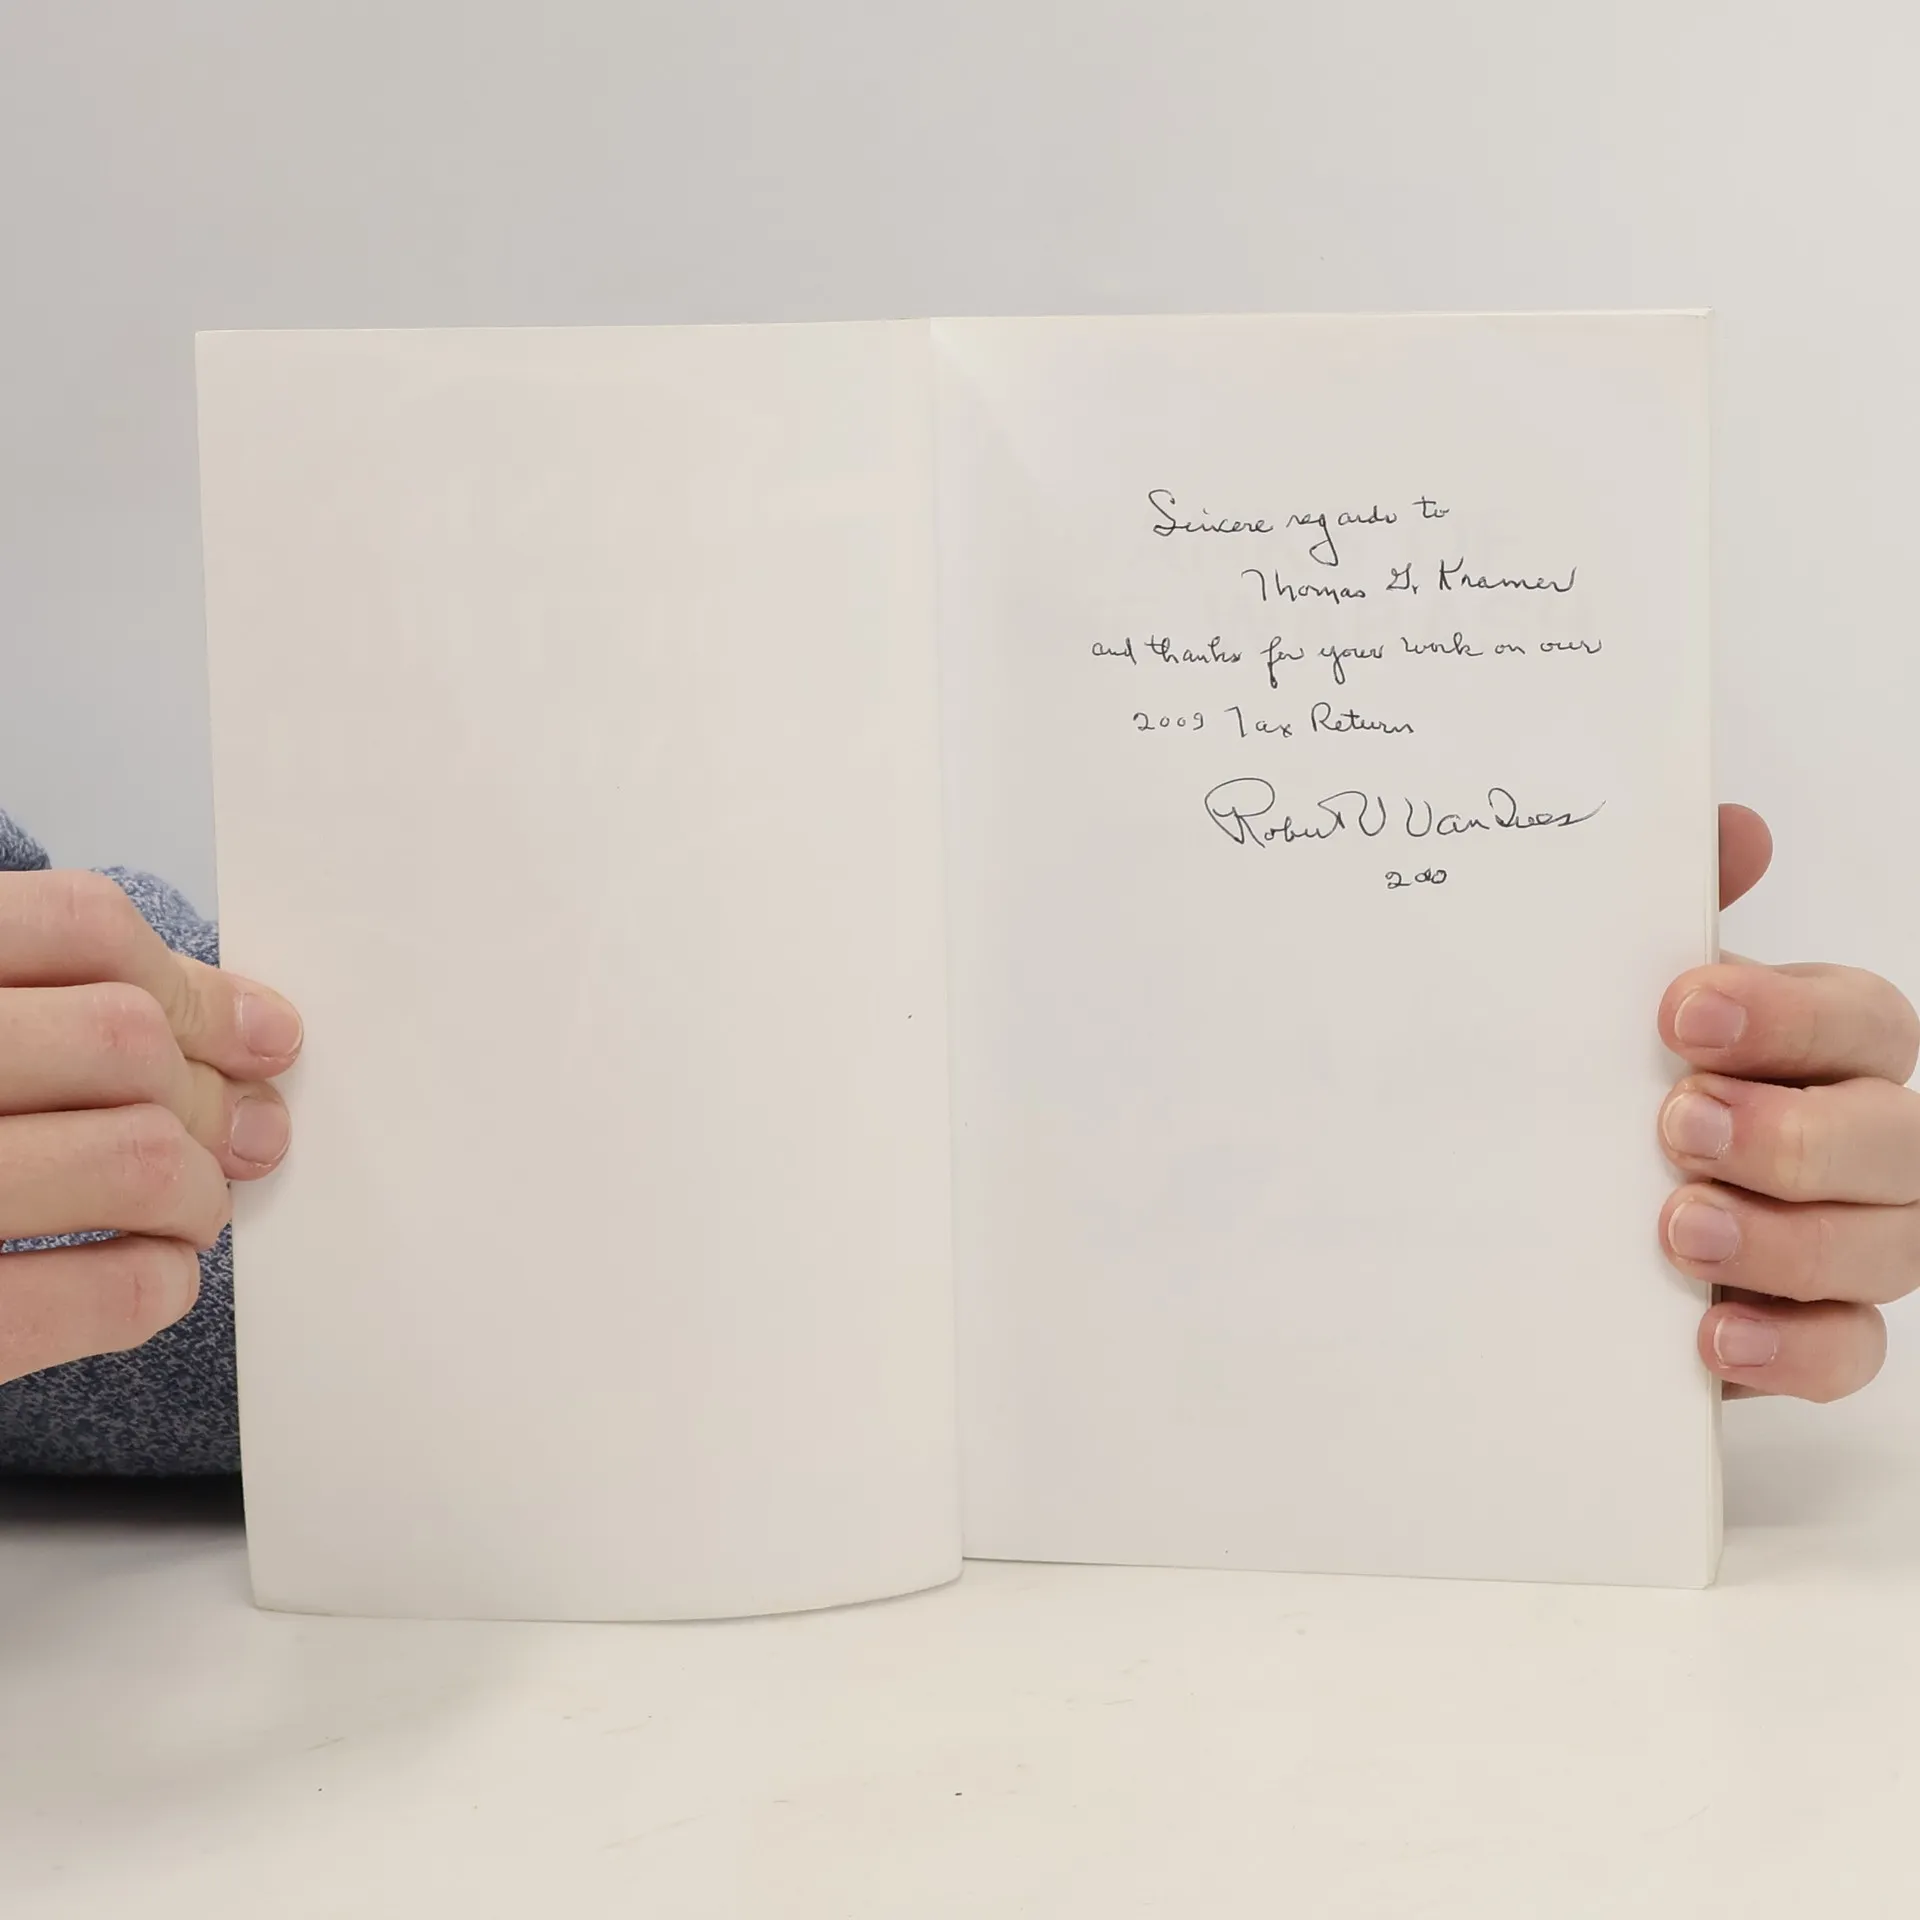 Sincere regards to
Thomas G. Kramer
and thanks for your work on our
2009 Tax Return
Robert V Van